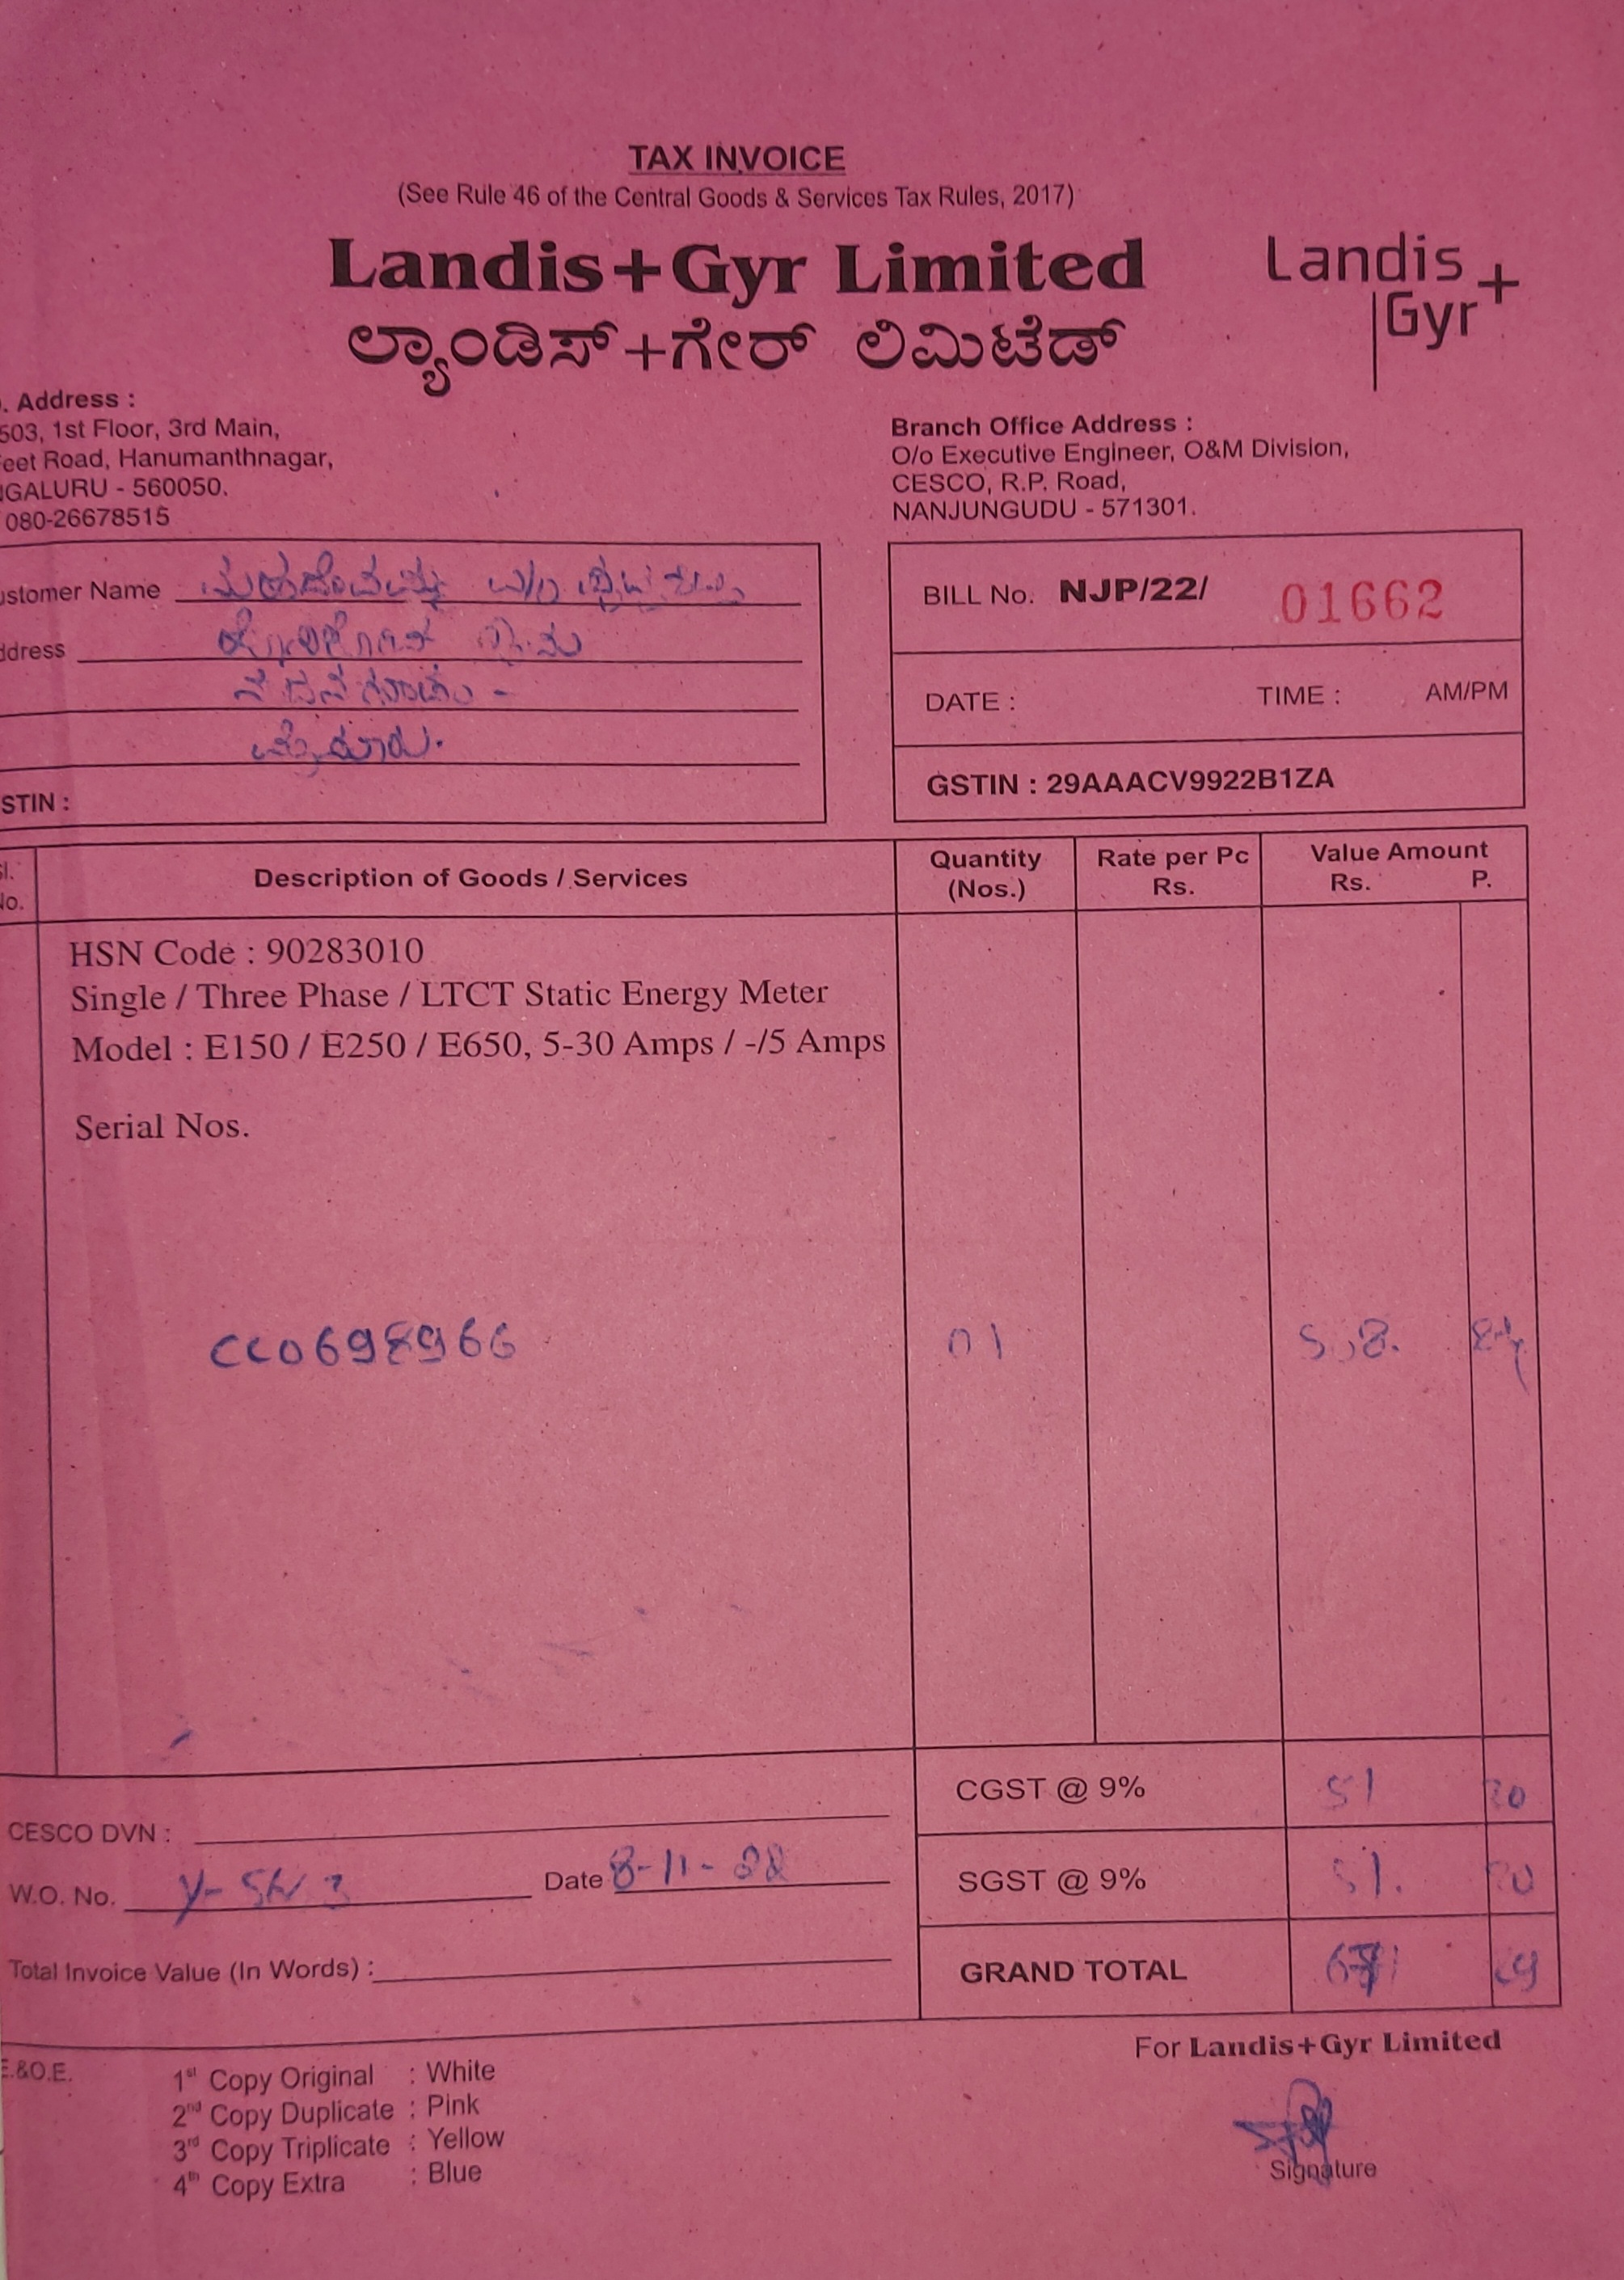 TAX INVOICE
(See Rule 46 of the Central Goods & Services Tax Rules, 2017)
Landis+Gyr Limited
ಲ್ಯಾಂಡಿಸ್+ಗೇರ್ ಲಿಮಿಟೆಡ್
Landis
Gyr+
. Address :
503, 1st Floor, 3rd Main,
eet Road, Hanumanthnagar,
GALURU - 560050.
080-26678515
Branch Office Address :
O/o Executive Engineer, O&M Division,
CESCO, R.P. Road,
NANJUNGUDU - 571301.
ustomer Name
ddress
ಮೈಸೂರು.
STIN :
BILL No. NJP/22/ 01662
DATE : TIME : AM/PM
GSTIN : 29AAACV9922B1ZA
Sl. No. Description of Goods / Services Quantity (Nos.) Rate per Pc Rs. Value Amount Rs. P.
HSN Code : 90283010
Single / Three Phase / LTCT Static Energy Meter
Model : E150 / E250 / E650, 5-30 Amps / -/5 Amps
Serial Nos.
CC0698966 01
CGST @ 9% 51
CESCO DVN :
W.O. No. Date 8-11-22
SGST @ 9% 51.
Total Invoice Value (In Words) :
GRAND TOTAL
For Landis+Gyr Limited
E.&O.E.
1st Copy Original : White
2nd Copy Duplicate : Pink
3rd Copy Triplicate : Yellow
4th Copy Extra : Blue
Signature